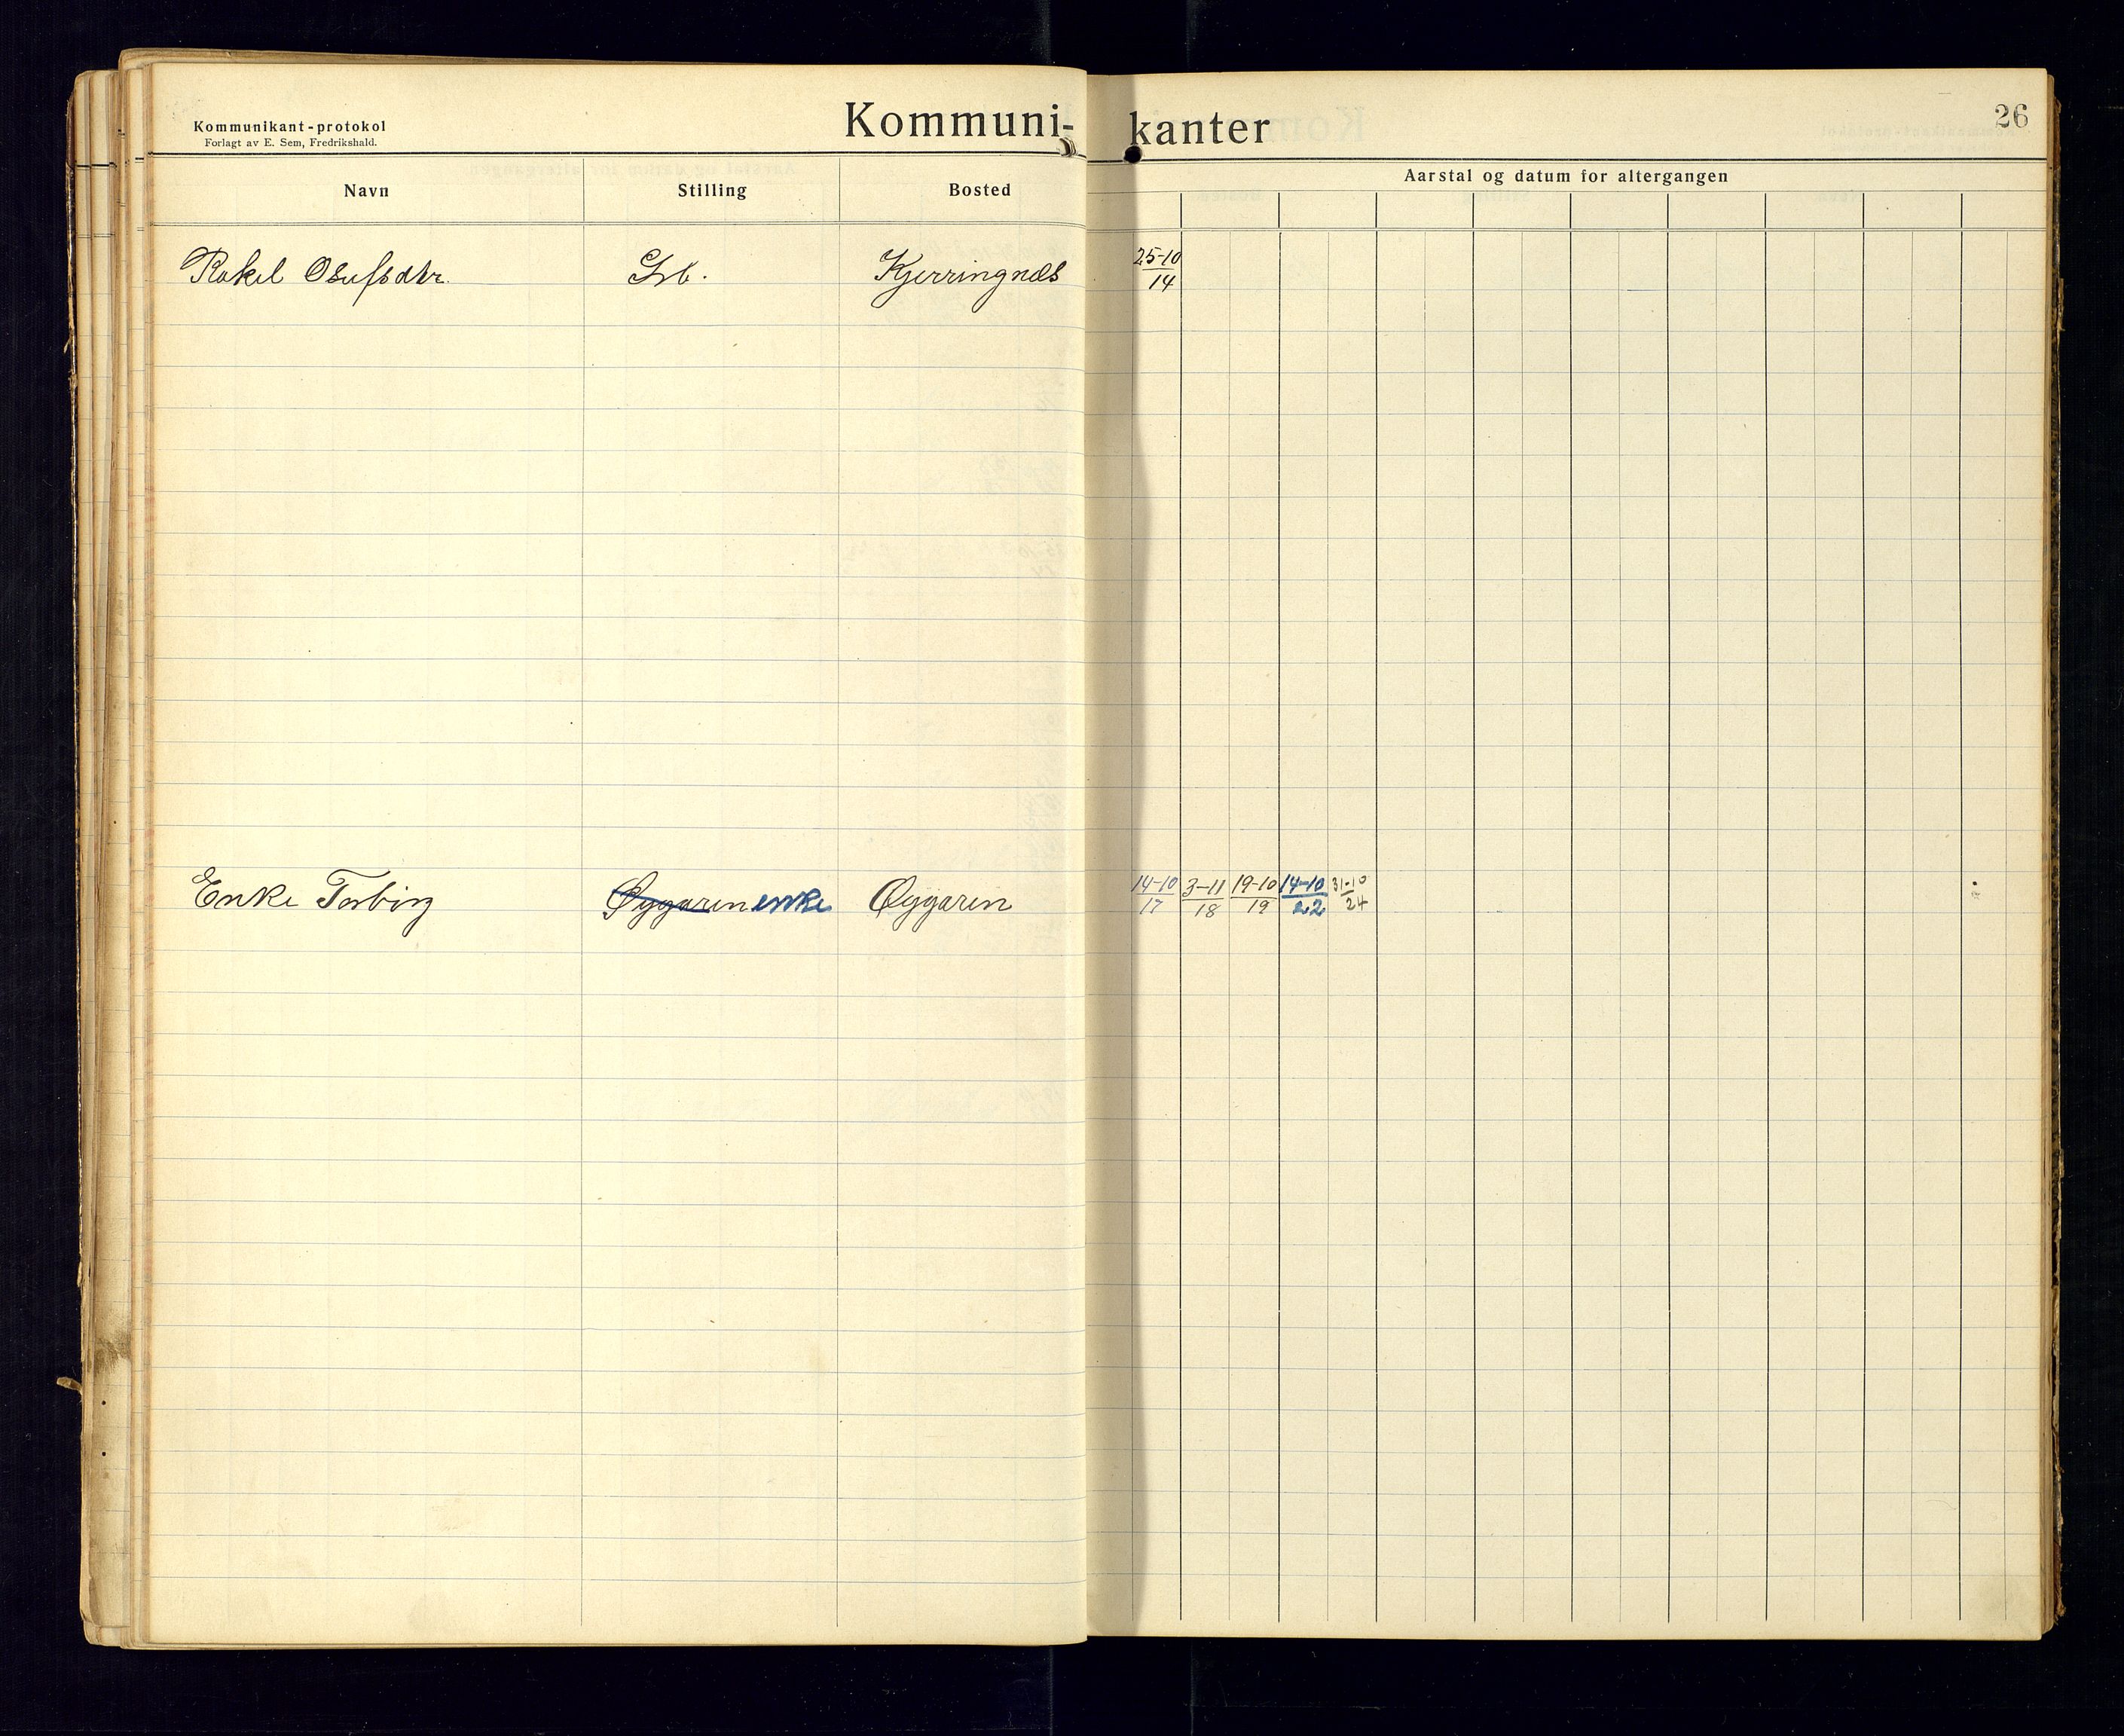 Kommunikant-protokol
Forlagt av E. Sem, Fredrikshald.
Kommuni- kanter
26
Navn Stilling Bosted Aarstal og datum for altergangen
Rakel Osufsdtr. Kjerringnes 25-10/14
Enke Torbirg Øygaren enke Øygaren 14-10/17 3-11/18 19-10/19 14-10/22 31-10/24